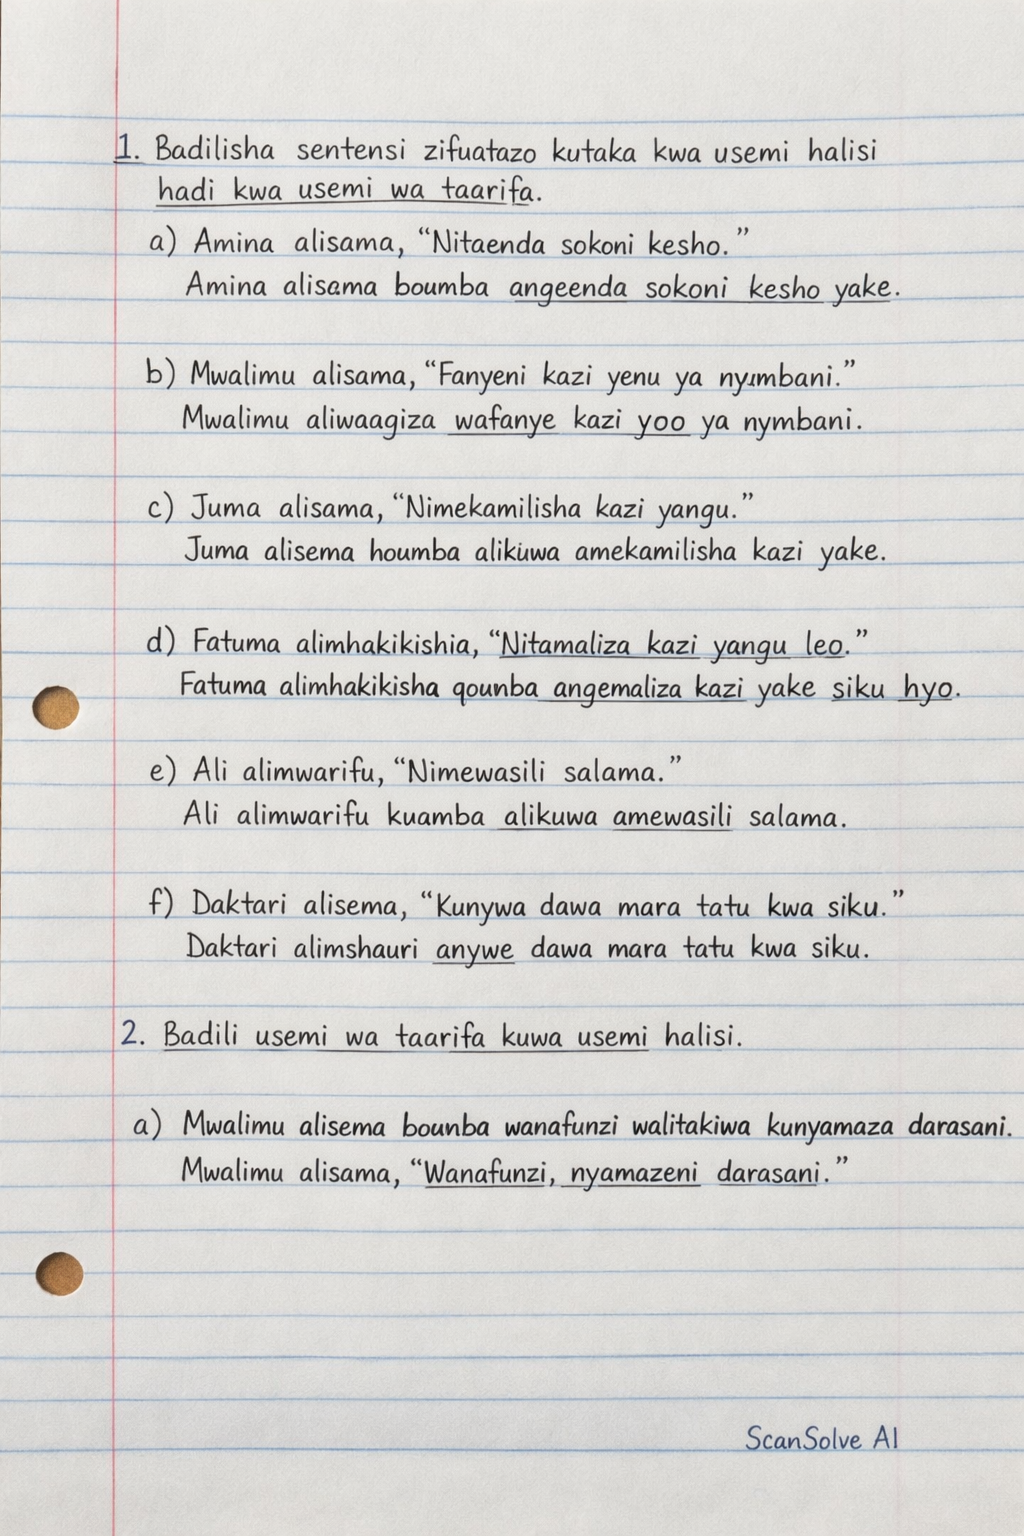 1. Badilisha sentensi zifuatazo kutaka kwa usemi halisi
hadi kwa usemi wa taarifa.
a) Amina alisama, “Nitaenda sokoni kesho.”
Amina alisama boumba angeenda sokoni kesho yake.
b) Mwalimu alisama, “Fanyeni kazi yenu ya nyımbani.”
Mwalimu aliwaagiza wafanye kazi yoo ya nymbani.
c) Juma alisama, “Nimekamilisha kazi yangu.”
Juma alisema houmba alikuwa amekamilisha kazi yake.
d) Fatuma alimhakikishia, “Nitamaliza kazi yangu leo.”
Fatuma alimhakikisha qounba angemaliza kazi yake siku hyo.
e) Ali alimwarifu, “Nimewasili salama.”
Ali alimwarifu kuamba alikuwa amewasili salama.
f) Daktari alisema, “Kunywa dawa mara tatu kwa siku.”
Daktari alimshauri anywe dawa mara tatu kwa siku.
2. Badili usemi wa taarifa kuwa usemi halisi.
a) Mwalimu alisema bounba wanafunzi walitakiwa kunyamaza darasani.
Mwalimu alisama, “Wanafunzi, nyamazeni darasani.”
ScanSolve AI